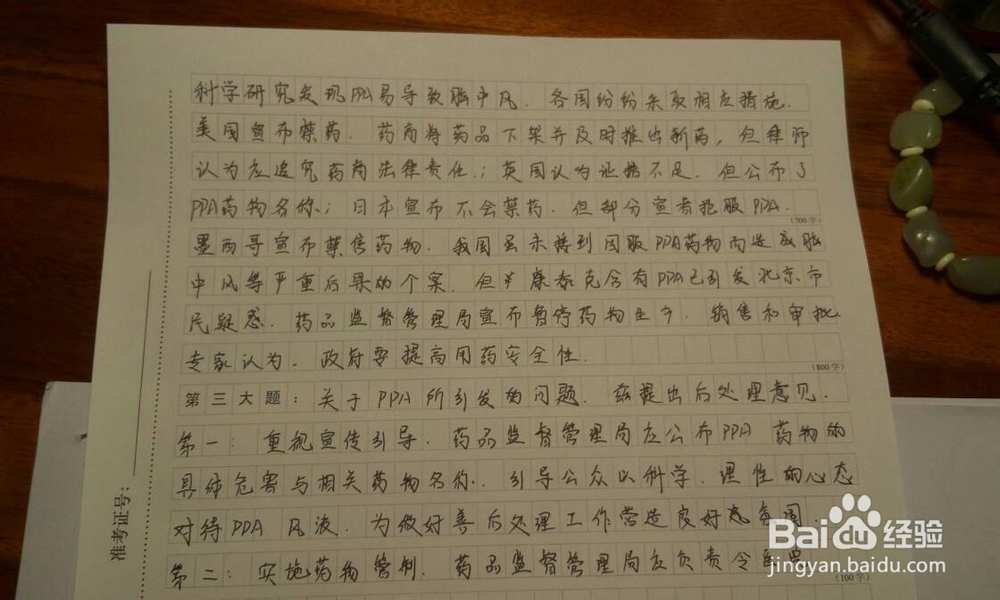 科学研究发现PPA易导致脑中风.各国纷纷采取相应措施.
美国宣布禁药.药商将药品下架并及时推出新药,但律师
认为应追究药商法律责任.;英国认为证据不足.但公布了
PPA药物名称;日本宣布不会禁药.但部分宣布拒服PPA.
(700字)
墨西哥宣布禁售药物.我国虽未接到因服PPA药物而造成脑
中风等严重后果的个案.但康泰克含有PPA已引发北京市
民疑惑.药品监督管理局宣布暂停药物生产.销售和审批.
专家认为.政府要提高用药安全性.
(800字)
第三大题:关于PPA所引发的问题.兹提出后处理意见.
第一:重视宣传引导.药品监督管理局应公布PPA药物的
具体危害与相关药物名称.引导公众以科学.理性的心态
对待PPA风波.为做好善后处理工作营造良好氛围.
第二:实施药物管制.药品监督管理局应负责令
(100字)
准考证号:
Baidu经验
jingyan.baidu.com